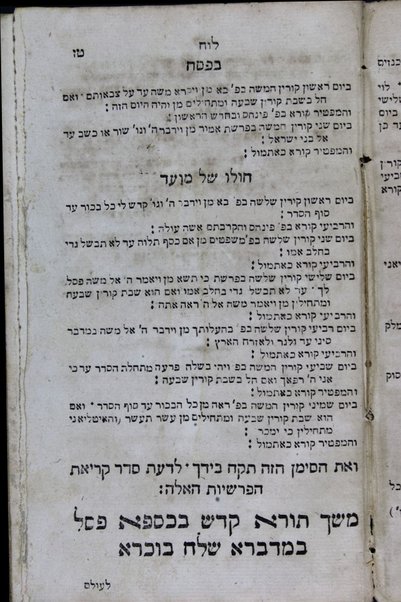 לוח
טז
בפסח
ביום ראשון קורין חמשה בפ׳ בא מן ויקרא משה עד על צבאותם ׳ ואם
חל בשבת קורין שבעה ומתחילים מן והיה היום הזה :
והמפטיר קורא בפ׳ פינחס ובחדש הראשון :
ביום שני קורין חמשה בפרשת אמור מן וידבר ה׳ וגו׳ שור או כשב עד
אל בני ישראל :
והמפטיר קורא כאתמול :
חולו של מועד
ביום ראשון קורין שלשה בפ׳ בא מן וידבר ה׳ וגו׳ קדש לי כל בכור עד
סוף הסדר :
והרביעי קורא בפ׳ פינחס והקרבתם אשה עולה :
ביום שני קורין שלשה בפ׳ משפטים מן אם כסף תלוה עד לא תבשל גדי
בחלב אמו :
והרביעי קורא כאתמול :
ביום שלישי קורין שלשה בפרשת כי תשא מן ויאמר ה׳ אל משה פסל
לך ׳ עד לא תבשל גדי בחלב אמו ואם הוא שבת קורין שבעת
ומתחילין מן ויאמר משה אל ה׳ ראה אתה :
והרביעי קורא כאתמול :
ביום רביעי קורין שלשה בפ׳ בהעלותך מן וידבר ה׳ אל משה במדבר
סיני עד ולגר ולאזרח הארץ :
והרביעי קורא כאתמול :
ביום שביעי קורין חמשה בפ׳ ויהי בשלח פרעה מתחלה הסדר עד כי
אני ה׳ רפאך ואם חל בשבת קורין שבעה :
והמפטיר קורא כאתמול :
ביום שמיני קורין חמשה בפ׳ ראה מן כל הבכור עד סוף הסדר ׳ ואם
הוא שבת קורין שבעת ומתחילים מן עשר תעשר ׳ והאיטליאני
מתחילין כי ימכר :
והמפטיר קורא כאתמול :
ואת הסימן הזה תקח בידך ׳ לדעת סדר קריאת
הפרשיות האלה :
משך תורא קדש בכספא פסל
במדברא שלח בוכרא
לעולם